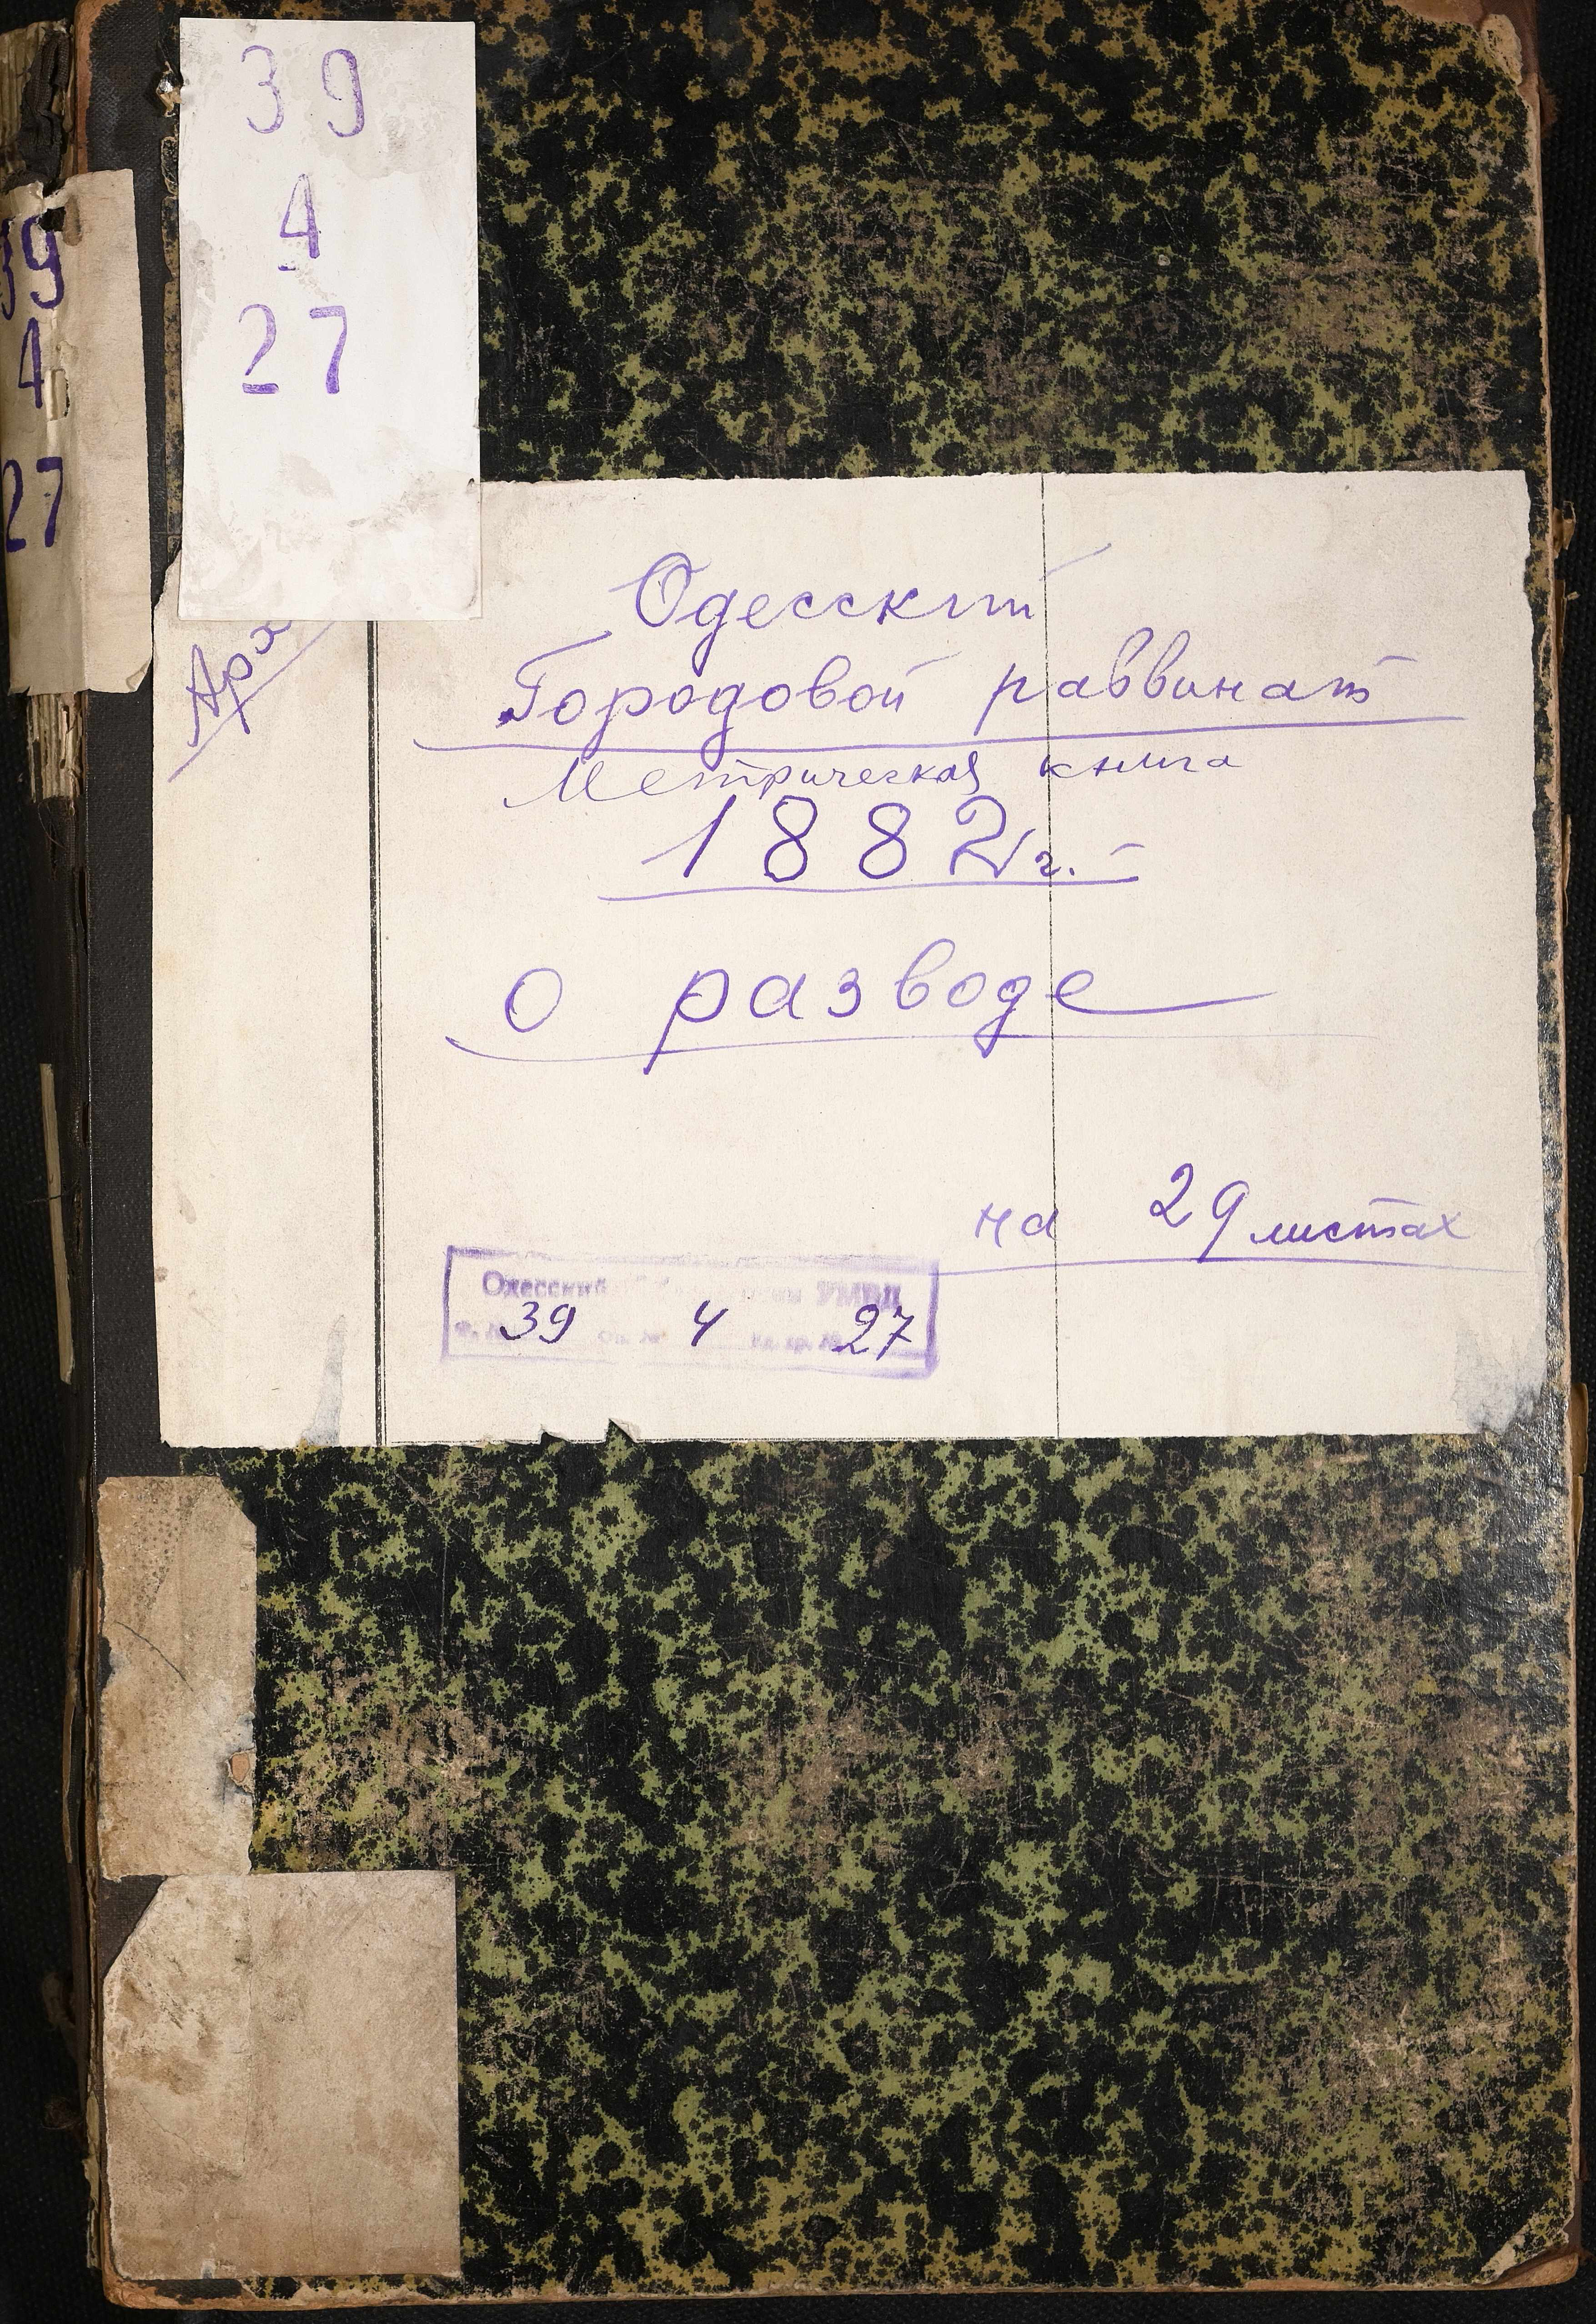 39
4
27
39
4
27
Арх
Одесский
Городовой раввинат
Метрическая книга
1882 г.
о разводе
на 29 листах
Одесский УМВД
39 4 27